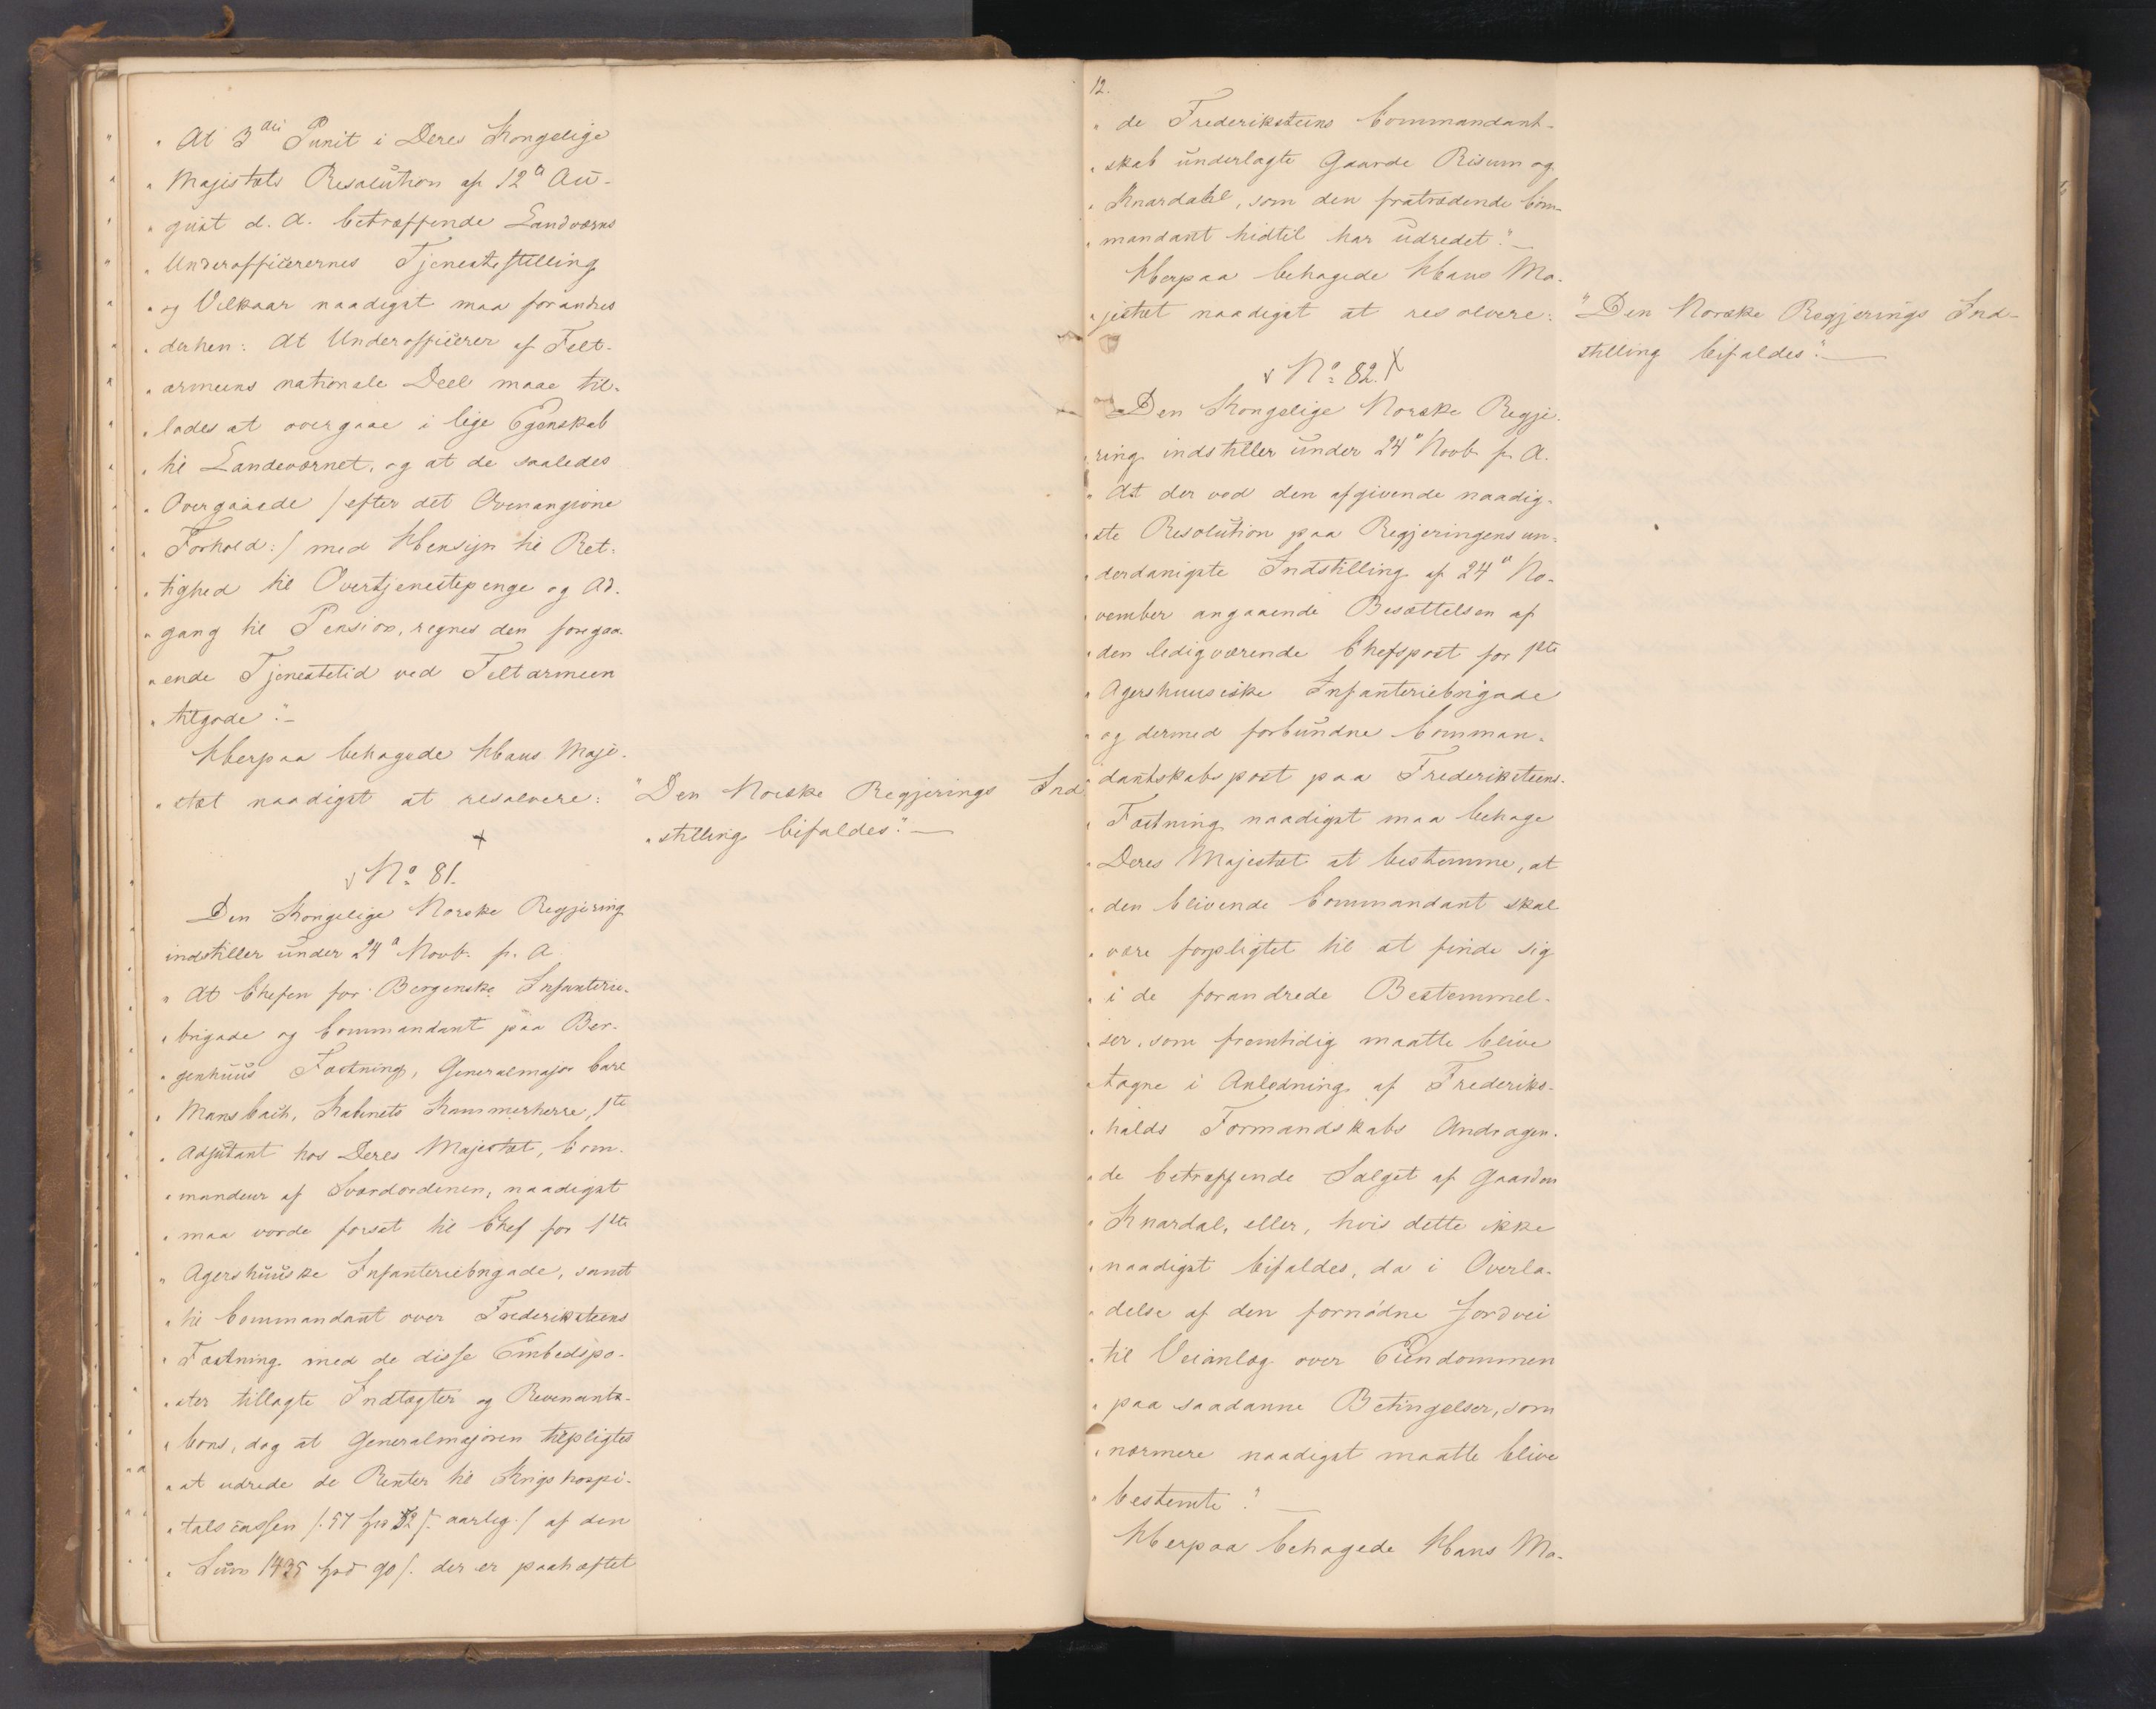 „ At 3die Punct i Deres Kongelige
„ Majestæts Resolution af 12te Au-
„ gust d. A. betræffende Landværns
„ Underofficerernes Tjenestestilling
„ og Vilkaar naadigst maa forandres
„ derhen: At Underofficerer af Felt-
„ armeens nationale Deel maae til-
„ lades at overgaae i lige Egenskab
„ til Landeværnet, og at de saaledes
„ Overgaaede /efter det Ovenangivne
„ Forhold:/ med Hensyn til Ret-
„ tighed til Overtjenestepenge og Ad-
„ gang til Pension, regnes den foregaa-
„ ende Tjenestetid ved Feltarmeen
„ tilgode".-
Herpaa behagede Hans Maje-
„ stæt naadigst at resolvere:
"Den Norske Regjerings Ind
„ stilling bifaldes".—
No 81.
Den Kongelige Norske Regjering
indstiller under 24de Novb. p. A.
„ At Chefen for Bergenske Infanterie-
„ brigade og Commandant paa Ber-
„ genhuus Fæstning, Generalmajor Carl
„ Mansbach, Kabinets Kammerherre, 1ste
„ Adjutant hos Deres Majestæt, Com-
„ mandeur af Sværdordenen, naadigst
„ maa vorde forsat til Chef for 1ste
„ Agershuuske Infanteriebrigade, samt
„ til Commandant over Frederiksteens
„ Fæstning med de disse Embedspo-
„ ster tillagte Indtægter og Revenants-
„ bons, dog at Generalmajoren tilpligtes
„ at udrede de Renter til Krigshospi-
„ talscassen /: 57 Spd 52 /. aarlig:/ af den
„ Sum 1435 Spd 90 /. der er paahæftet
12.
„ de Frederiksteens Commandant-
„ skab underlagte Gaarde Risum og
„ Knardahl, som den fratrædende Com-
„ mandant hidtil har udredet".—
Herpaa behagede Hans Ma-
„ jestæt naadigst at resolvere:
"Den Norske Regjerings Ind-
stilling bifaldes".—
No 82.
Den Kongelige Norske Regje-
ring indstiller under 24de Novb. p. A.
„ At der ved den afgivende naadig-
„ ste Resolution paa Regjeringens un-
„ derdanigste Indstilling af 24de No-
„ vember angaaende Besættelsen af
„ den ledigværende Chefspost for 1ste
„ Agershuusiske Infanteriebrigade
„ og dermed forbundne Comman-
„ dantskabspost paa Frederiksteens
„ Fæstning naadigst maa behage
„ Deres Majestæt at bestemme, at
„ den blivende Commandant skal
„ være forpligtet til at finde sig
„ i de forandrede Bestemmel-
„ ser, som fremtidig maatte blive
„ tagne i Anledning af Frederiks-
„ halds Formandskabs Andragen-
„ de betræffende Salget af Gaarden
„ Knardal, eller, hvis dette ikke
„ naadigst bifaldes, da i Overla-
„ delse af den fornødne Jordvei
„ til Veianlæg over Eiendommen
„ paa saadanne Betingelser, som
„ nærmere naadigst maatte blive
„ bestemte".—
Herpaa behagede Hans Ma-